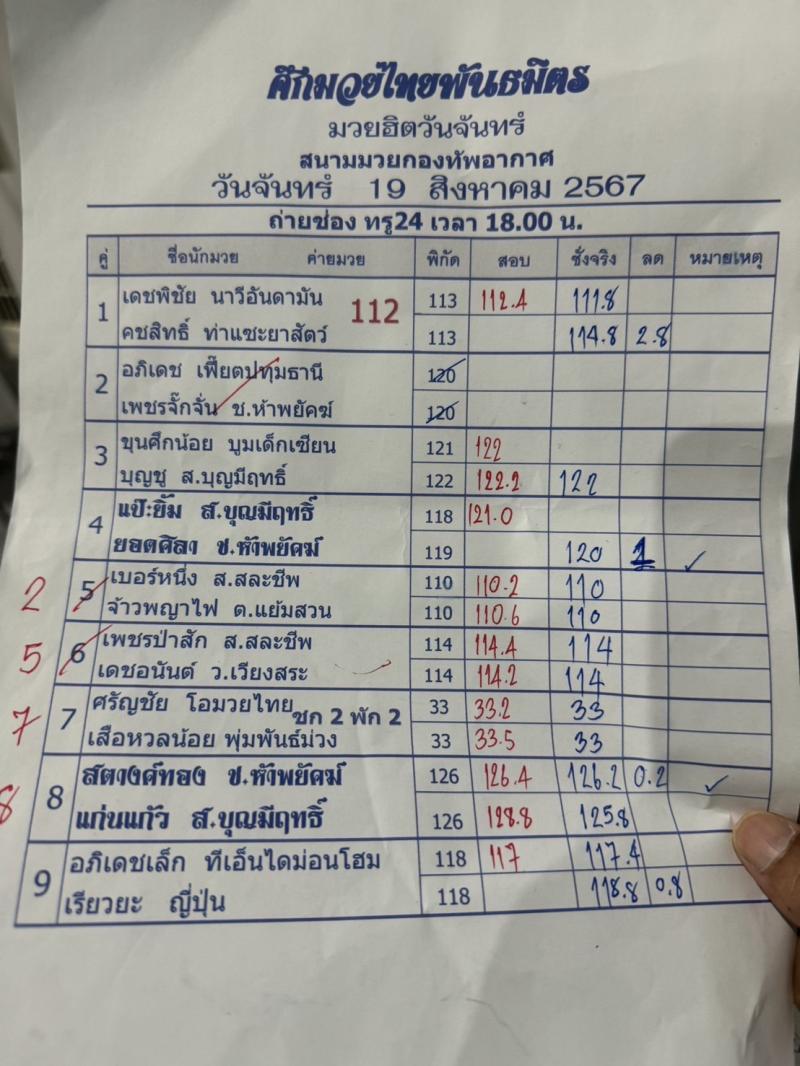 ศึกมวยไทยพันธมิตร
มวยฮิตวันจันทร์
สนามมวยกองทัพอากาศ
วันจันทร์ 19 สิงหาคม 2567
ถ่ายช่อง ทรู24 เวลา 18.00 น.
คู่ ชื่อนักมวย ค่ายมวย พิกัด สอบ ชั่งจริง ลด หมายเหตุ
1 เดชพิชัย นาวีอันดามัน 112 113 112.4 111.8
คชสิทธิ์ ท่าแซะยาสัตว์ 113 114.8 2.8
2 อภิเดช เฟี๊ยตปทุมธานี 120
เพชรจั๊กจั่น ช.ห้าพยัคฆ์ 120
3 ขุนศึกน้อย บูมเด็กเซียน 121 122
บุญชู ส.บุญมีฤทธิ์ 122 122.2 122
4 แป๊ะยิ้ม ส.บุญมีฤทธิ์ 118 121.0
ยอดศิลา ช.ห้าพยัคฆ์ 119 120 1 ✓
2 5 เบอร์หนึ่ง ส.สละชีพ 110 110.2 110
จ้าวพญาไฟ ต.แย้มสวน 110 110.6 110
5 6 เพชรป่าสัก ส.สละชีพ 114 114.4 114
เดชอนันต์ ว.เวียงสระ 114 114.2 114
7 7 ศรัญชัย โอมวยไทย ชก 2 พัก 2 33 33.2 33
เสือหวลน้อย พุ่มพันธ์ม่วง 33 33.5 33
8 8 สตางค์ทอง ช.ห้าพยัคฆ์ 126 126.4 126.2 0.2 ✓
แก่นแก้ว ส.บุญมีฤทธิ์ 126 128.8 125.8
9 อภิเดชเล็ก ทีเอ็นไดม่อนโฮม 118 117 117.4
เรียวยะ ญี่ปุ่น 118 118.8 0.8